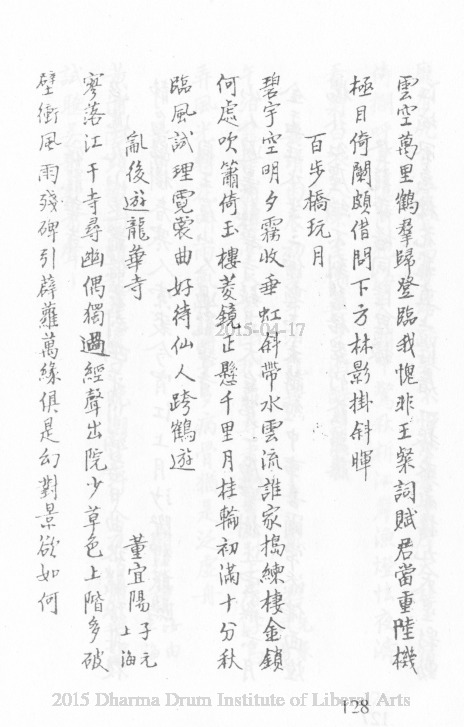 雲空萬里鶴羣歸登臨我愧非王粲詞賦君當重陸機
極目倚闌頗借問下方林影掛斜暉
百步橋玩月
碧宇空明夕霧收垂虹斜帶水雲流誰家搗練棲金鎖
何處吹簫倚玉樓菱鏡正懸千里月桂輪初滿十分秋
臨風試理霓裳曲好待仙人跨鶴遊
亂後遊龍華寺
董宜陽 子元 上海
寥落江干寺尋幽偶獨過經聲出院少草色上階多破
壁衝風雨殘碑引薜蘿萬緣俱是幻對景欲如何
2015-04-17
128
2015 Dharma Drum Institute of Liberal Arts